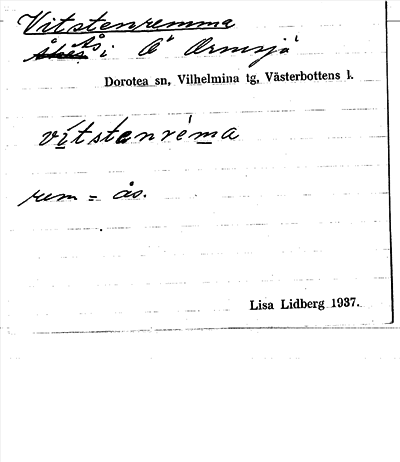 Vitstenremma
Ås i Å Ormsjö
Dorotea sn, Vilhelmina tg, Västerbottens l.
vítstanréma
rem = ås.
Lisa Lidberg 1937.